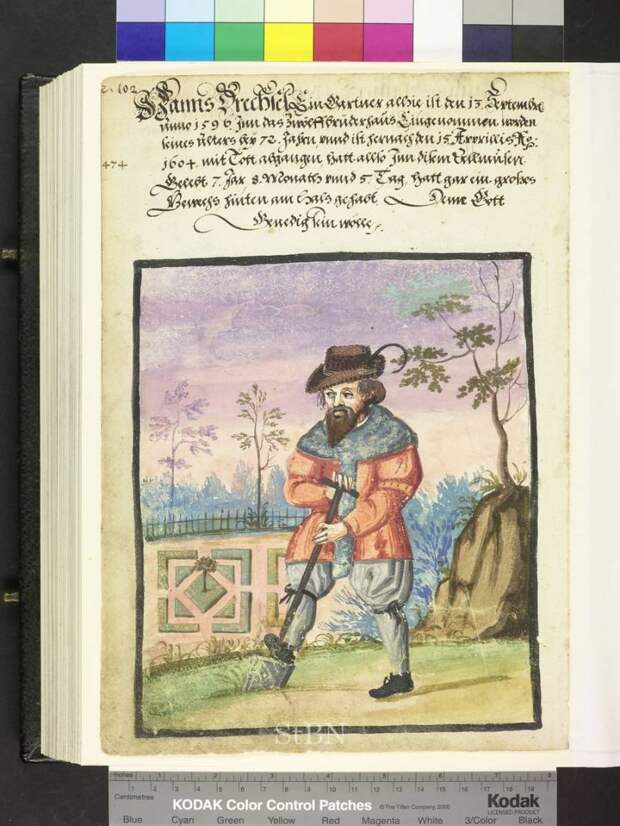 Hanns Prechsel Ein Gartner alhie ist den 13. Septembr
Anno 1596 Inn das Zwelffbruderhaus Eingenommen worden
seines Alters der 72. Jahrn vnnd ist hernach den 15. Apprillis
1604. mit Tott abgangen hatt also Inn disem Allmusen
474
Gelebt 7. Jar 8. Monath vnnd 5. Tag. hatt gar ein großes
Gewechs hinten am hals gehabt. Deme Gott
Genedig sein wolle.
StBN
Inches 1 2 3 4 5 6 7 8
Centimetres 1 2 3 4 5 6 7 8 9 10 11 12 13 14 15 16 17 18 19
KODAK Color Control Patches © The Tiffen Company, 2000 Kodak
LICENSED PRODUCT
Blue Cyan Green Yellow Red Magenta White 3/Color Black